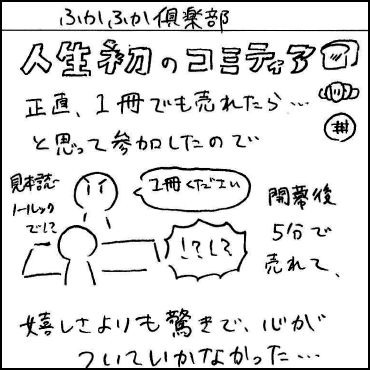 ふかふか倶楽部
人生初のコミティア
正直、1冊でも売れたら…
と思って参加したので
見本読
ノールック
でし?
1冊ください
!?!?
開幕後
5分で
売れて、
嬉しさよりも驚きで、心が
ついていかなかった…